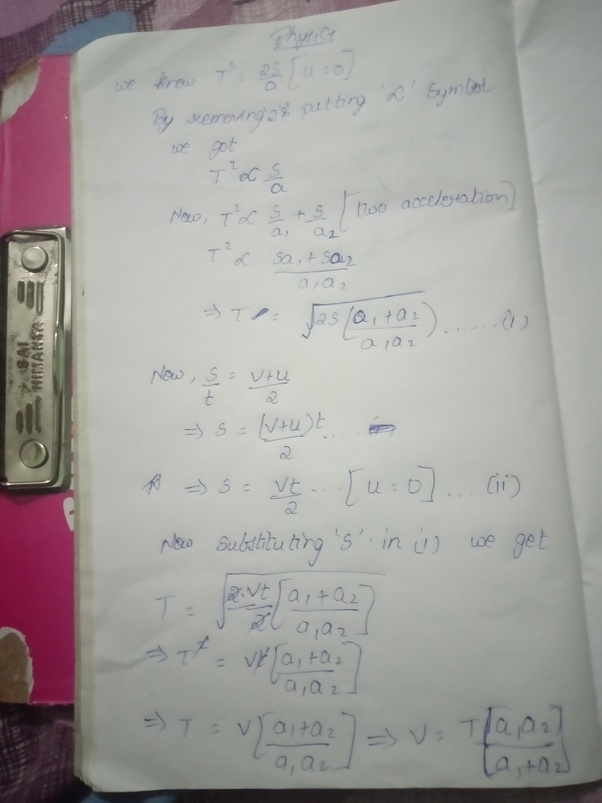 Physics
we know T² = 2s/a [u=0]
By removing 2 & putting 'α' symbol
we got
T² α s/a
Now, T² α s/a₁ + s/a₂ [two acceleration]
T² α sa₁+sa₂/a₁a₂
⇒ T = √2s(a₁+a₂/a₁a₂) ....... (i)
Now, s/t = v+u/2
⇒ s = (v+u)t/2 ....
⇒ s = vt/2 .... [u=0] .... (ii)
Now substituting 's' in (i) we get
T = √2.vt/2 [a₁+a₂/a₁a₂]
⇒ T² = vt [a₁+a₂/a₁a₂]
⇒ T = v[a₁+a₂/a₁a₂] ⇒ v = T[a₁a₂/a₁+a₂]
SAI
NIMANTA